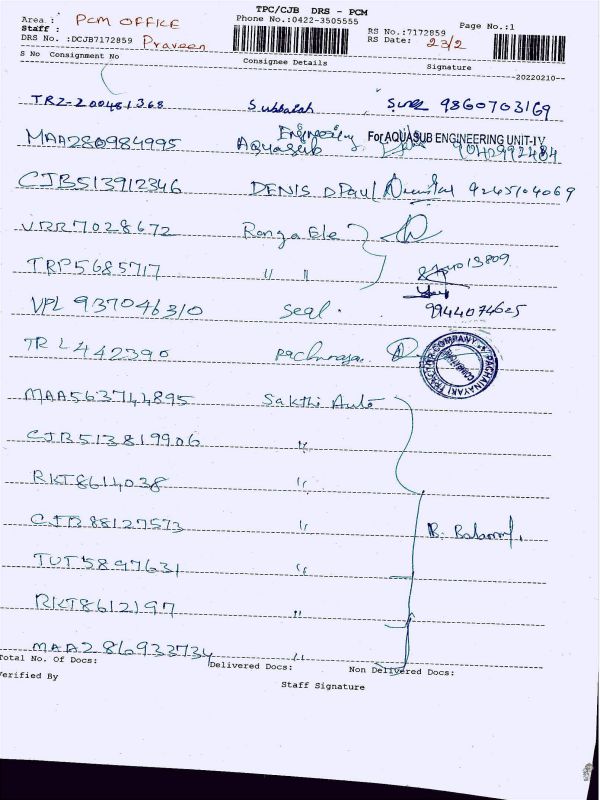 TPC/CJB DRS - PCM
Area : PCM OFFICE Phone No.:0422-3505555 RS No.:7172859 Page No.:1
Staff :
DRS No. :DCJB7172859 Praveen RS Date: 23/2
S No Consignment No Consignee Details Signature
20220210
TRZ-200481368 Subbaiah 9860703169
MAA280984995 Aquasub Engineering For AQUASUB ENGINEERING UNIT-IV
CJB513912346 DENIS D Paul 9245104069
VRR7028672 Ranga Ele
TRP5685717 " "
VPL 937046310 Seal. 9944074625
TRL442390 PACHAINAYAKI TRACTOR COMPANY
MAA563744895 Sakthi Auto
CJB513819906 "
RKT8614038 "
CJB88127573 " B.
TUT5897631 "
RKT8612197 "
MAA286933734 "
Total No. Of Docs: Delivered Docs: Non Delivered Docs:
Verified By Staff Signature